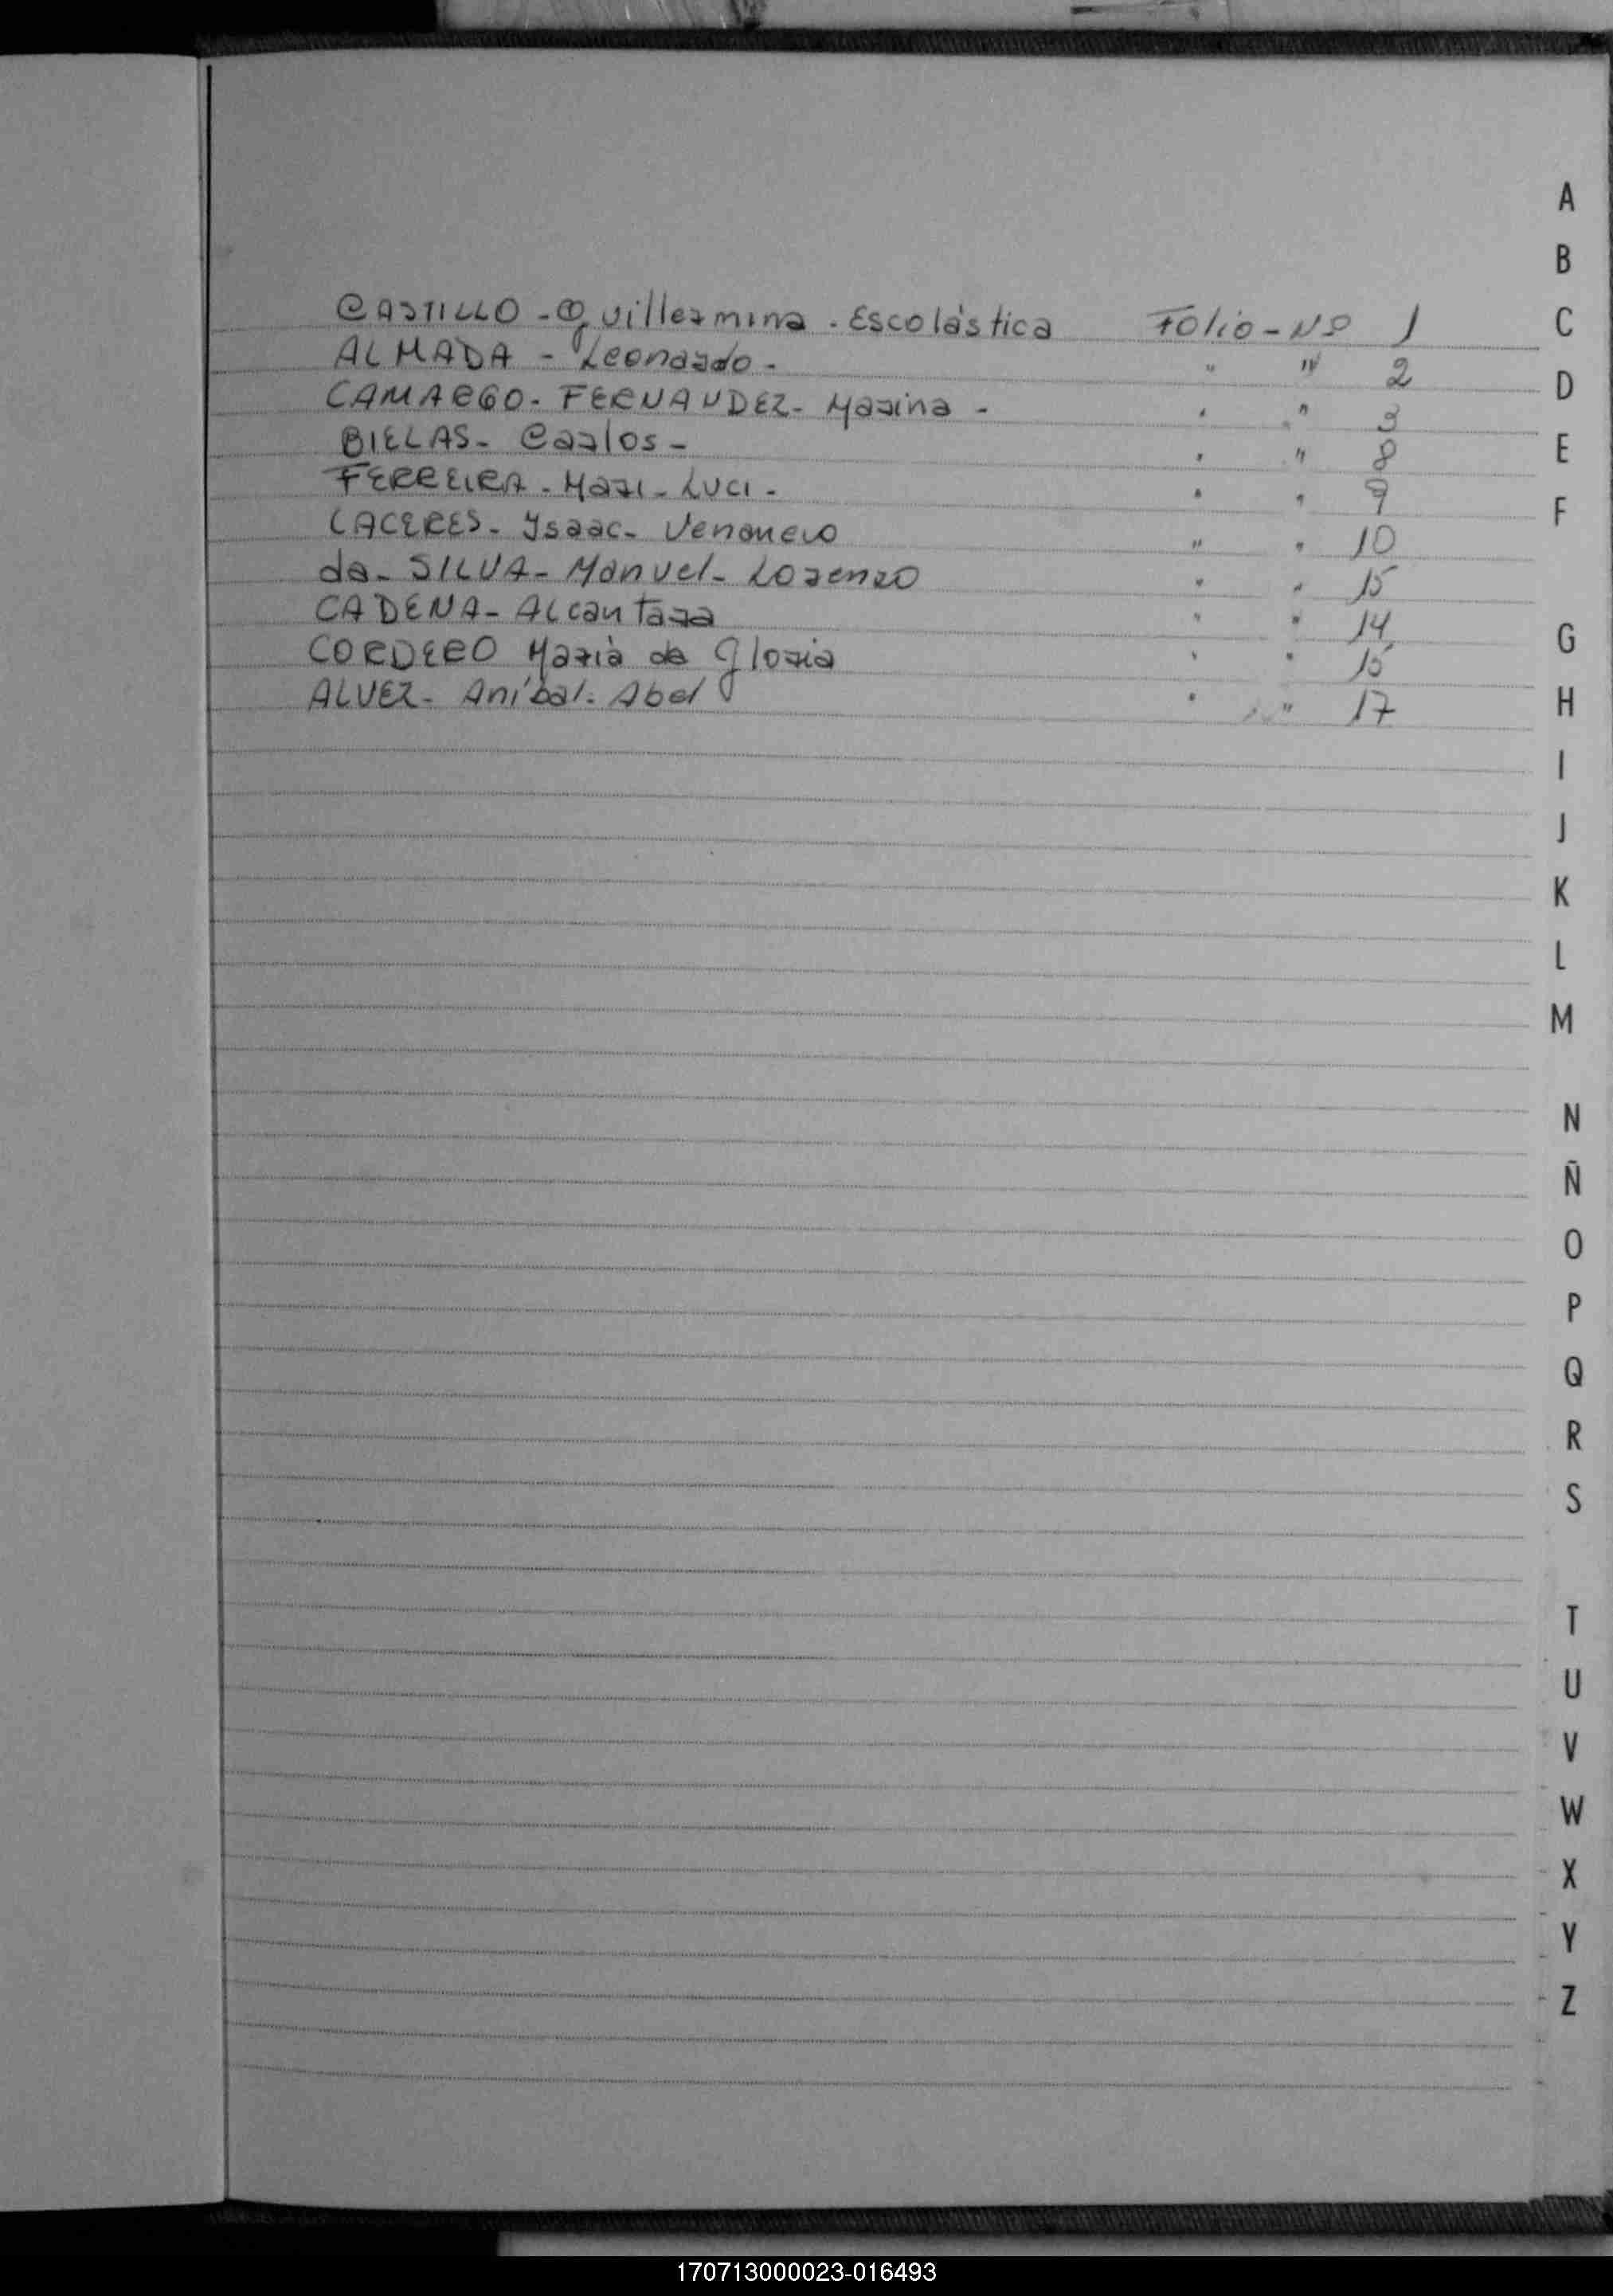 CASTILLO - Guillermina . Escolástica Folio - Nº 1
ALMADA - Leonardo - " " 2
CAMARGO - FERNANDEZ - Marina - " " 3
BIELAS - Carlos - " " 8
FERREIRA - Mari - Luci - " " 9
CACERES - Ysaac - " " 10
da - SILVA - Manuel - Lorenzo " " 15
CADENA - Alcantara " " 14
CORDERO Maria da Gloria " " 15
ALVEZ - Aníbal - Abel " " 17
A
B
C
D
E
F
G
H
I
J
K
L
M
N
Ñ
O
P
Q
R
S
T
U
V
W
X
Y
Z
170713000023-016493